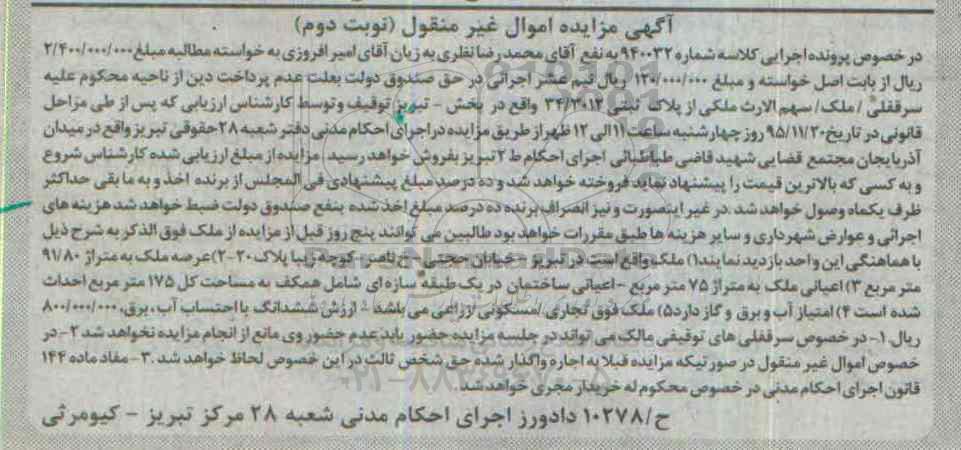 آگهی مزایده اموال غیر منقول (نوبت دوم)
در خصوص پرونده اجرایی کلاسه شماره ۹۴۰۰۳۲ به نفع آقای محمدرضا نظری به زیان آقای امیر افروزی به خواسته مطالبه مبلغ ۲/۴۰۰/۰۰۰/۰۰۰
ریال از بابت اصل خواسته و مبلغ ۱۲۰/۰۰۰/۰۰۰ ریال نیم عشر اجرائی در حق صندوق دولت بعلت عدم پرداخت دین از ناحیه محکوم علیه
سرقفلی / ملک/ سهم الارث ملکی از پلاک ثبتی ۳۴/۲۰۱۲ واقع در بخش - تبریز توقیف و توسط کارشناس ارزیابی که پس از طی مراحل
قانونی در تاریخ ۹۵/۱۱/۲۰ روز چهارشنبه ساعت ۱۱ الی ۱۲ ظهر از طریق مزایده در اجرای احکام مدنی دفتر شعبه ۲۸ حقوقی تبریز واقع در میدان
آذربایجان مجتمع قضایی شهید قاضی طباطبائی اجرای احکام ط ۲ تبریز بفروش خواهد رسید مزایده از مبلغ ارزیابی شده کارشناس شروع
و به کسی که بالاترین قیمت را پیشنهاد نماید فروخته خواهد شد و ده درصد مبلغ پیشنهادی فی المجلس از برنده اخذ و به ما بقی حداکثر
ظرف یکماه وصول خواهد شد .در غیر اینصورت و نیز انصراف برنده ده درصد مبلغ اخذ شده بنفع صندوق دولت ضبط خواهد شد هزینه های
اجرائی و عوارض شهرداری و سایر هزینه ها طبق مقررات خواهد بود طالبین می توانند پنج روز قبل از مزایده از ملک فوق الذکر به شرح ذیل
با هماهنگی این واحد بازدید نمایند۱) ملک واقع است در تبریز - خیابان حجتی - ناصر- کوچه زیبا پلاک ۲۰-۲) عرصه ملک به متراژ ۹۱/۸۰
متر مربع ۳) اعیانی ملک به متراژ ۷۵ متر مربع - اعیانی ساختمان در یک طبقه سازه ای شامل همکف به مساحت کل ۱۷۵ متر مربع احداث
شده است ۴) امتیاز آب و برق و گاز دارد۵) ملک فوق تجاری /مسکونی /زراعی می باشد - ارزش ششدانگ با احتساب آب، برق، ۸۰۰/۰۰۰/۰۰۰
ریال. ۱- در خصوص سرقفلی های توقیفی مالک می تواند در جلسه مزایده حضور یابد عدم حضور وی مانع از انجام مزایده نخواهد شد ۲- در
خصوص اموال غیر منقول در صورتیکه مزایده قبلا به اجاره واگذار شده حق شخص ثالث در این خصوص لحاظ خواهد شد .۳- مفاد ماده ۱۴۴
قانون اجرای احکام مدنی در خصوص محکوم له خریدار مجری خواهد شد
ح/۱۰۲۷۸ دادورز اجرای احکام مدنی شعبه ۲۸ مرکز تبریز - کیومرثی